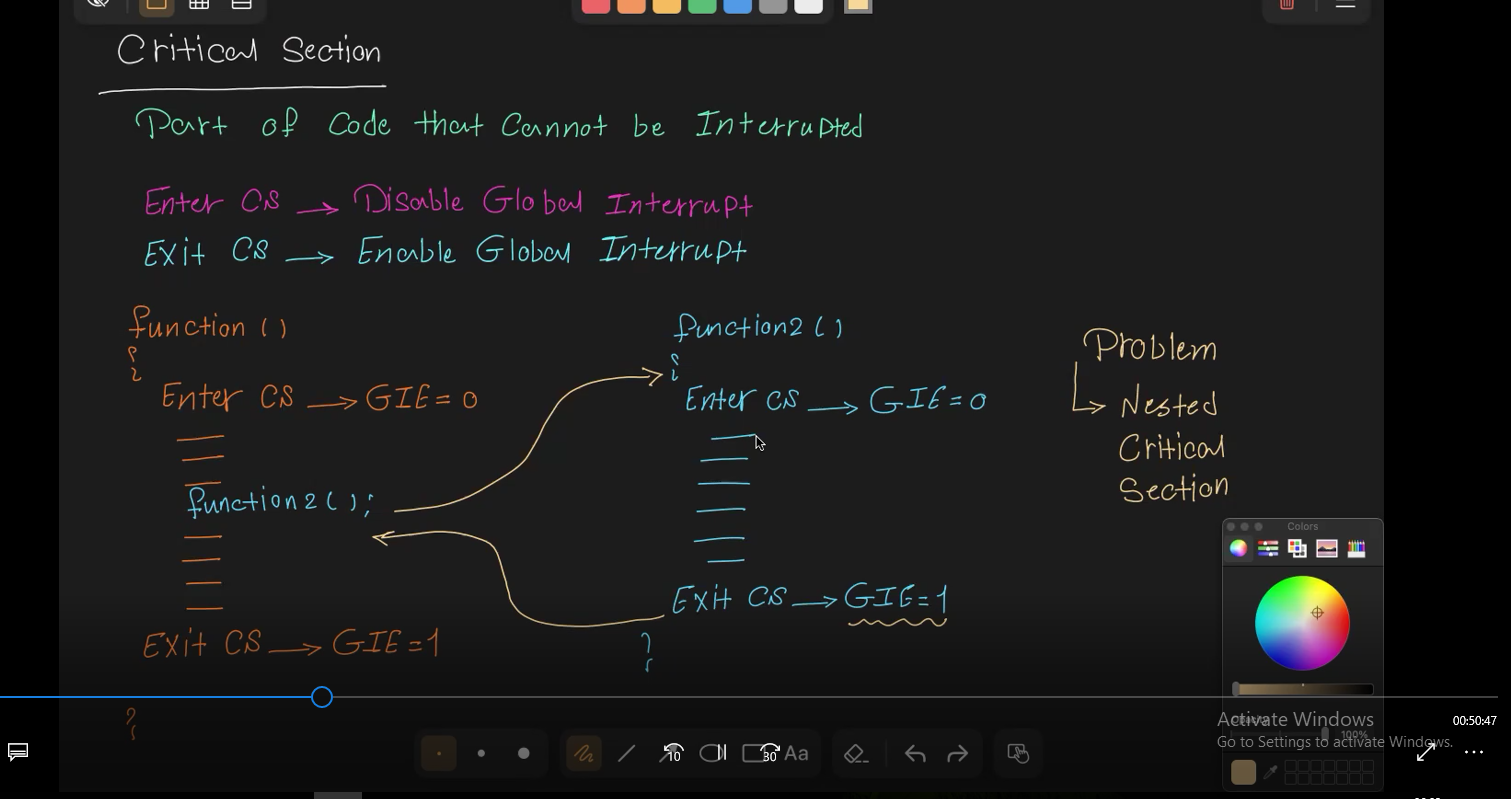 Critical Section
Part of Code that Cannot be Interrupted
Enter CS → Disable Global Interrupt
Exit CS → Enable Global Interrupt
function ()
{
Enter CS → GIE = 0
function2 ( ) ;
Exit CS → GIE = 1
}
function2 ( )
{
Enter CS → GIE = 0
Exit CS → GIE = 1
}
Problem
Nested
Critical
Section
Colors
100%
Activate Windows
Go to Settings to activate Windows.
00:50:47
10
30
Aa